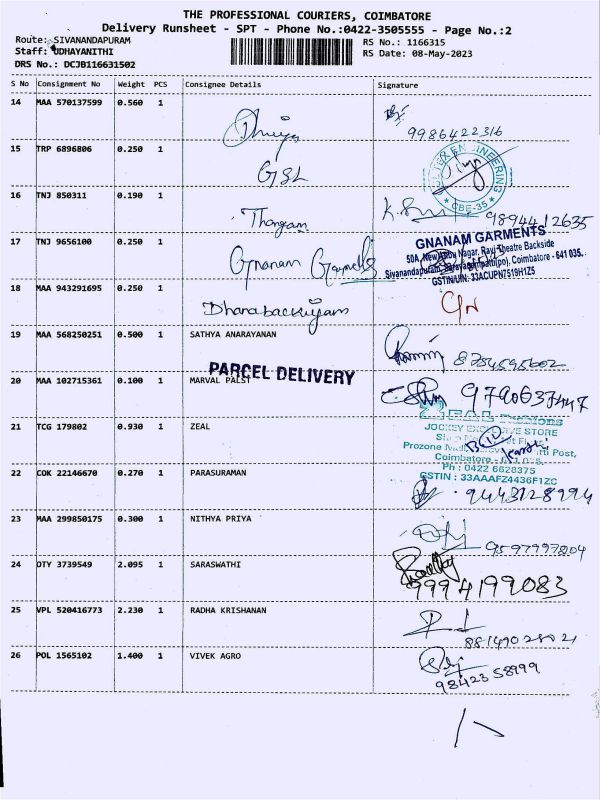 THE PROFESSIONAL COURIERS, COIMBATORE
Delivery Runsheet - SPT - Phone No.:0422-3505555 - Page No.:2
Route: SIVANANDAPURAM
RS No.: 1166315
Staff: UDHAYANITHI
RS Date: 08-May-2023
DRS No.: DCJB116631502
S No Consignment No Weight PCS Consignee Details Signature
14 MAA 570137599 0.560 1
9986422316
15 TRP 6896806 0.250 1 GSL
ENGINEERING
* CBE-35 *
16 TNJ 850311 0.190 1 Thangam
9894412635
17 TNJ 9656100 0.250 1 Gnanam Garments
GNANAM GARMENTS
Theatre Backside
Sivanandapuram, Coimbatore - 641 035.
GSTIN/UIN: 33ACUPN7519H1Z5
18 MAA 943291695 0.250 1 Dhanabackiyam
19 MAA 568250251 0.500 1 SATHYA ANARAYANAN
8754595602
PARCEL DELIVERY
20 MAA 102715361 0.100 1 MARVAL PALST
9790637447
21 TCG 179802 0.930 1 ZEAL
JOCKEY EXCLUSIVE STORE
Prozone Post,
Coimbatore
Ph : 0422 6628375
GSTIN : 33AAAFZ4436F1ZC
22 COK 22146670 0.270 1 PARASURAMAN
9443128994
23 MAA 299850175 0.300 1 NITHYA PRIYA
9597997804
24 OTY 3739549 2.095 1 SARASWATHI
9994199083
25 VPL 520416773 2.230 1 RADHA KRISHANAN
26 POL 1565102 1.400 1 VIVEK AGRO
9842358999